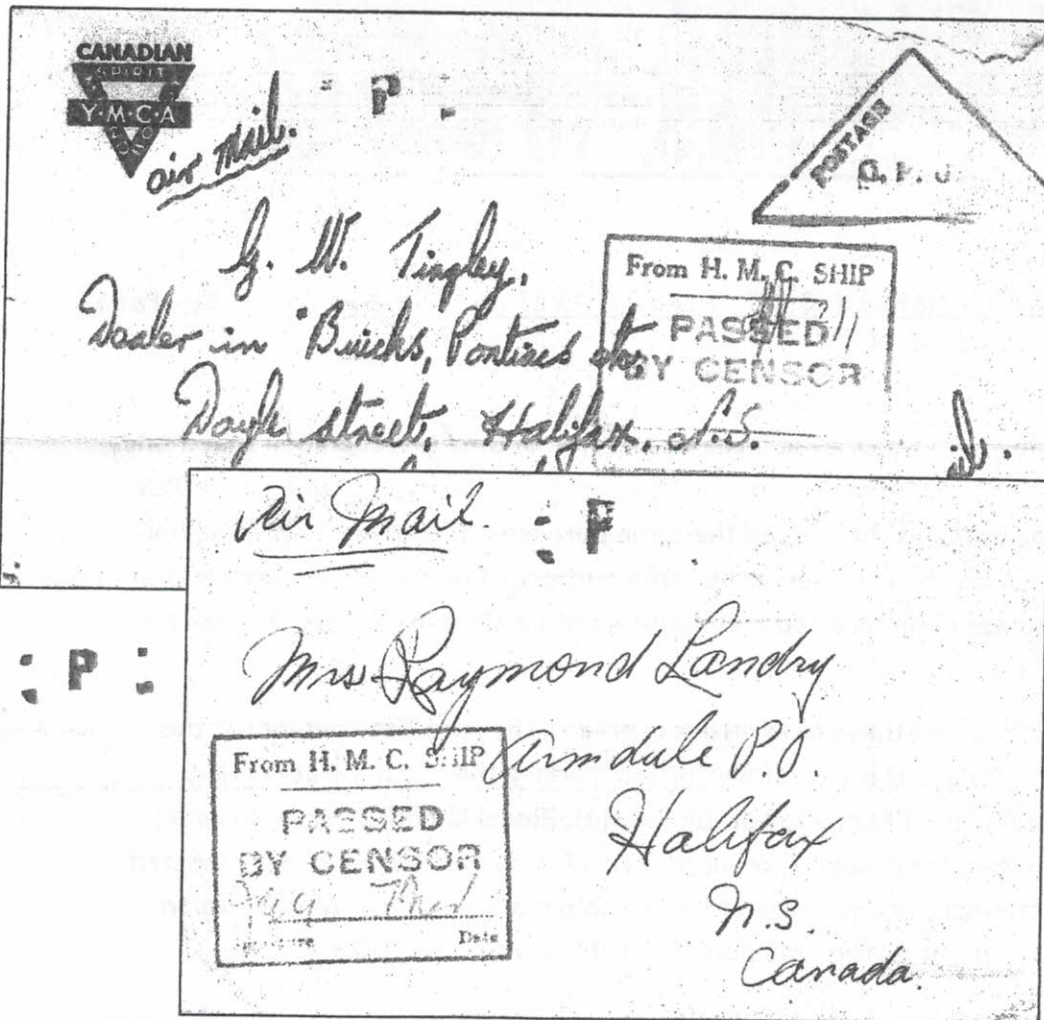 CANADIAN
SPIRIT
Y·M·C·A
air mail.
: P :
POSTAGE
G.
G. W. Tingley,
Dealer in "Buicks, Pontiacs etc
Doyle street, Halifax, N.S.
From H. M. C. SHIP
PASSED
BY CENSOR
Air Mail.
: P
Mrs Raymond Landry
Armdale PO
Halifax
N.S.
Canada.
From H. M. C. SHIP
PASSED
BY CENSOR
Date
: P :